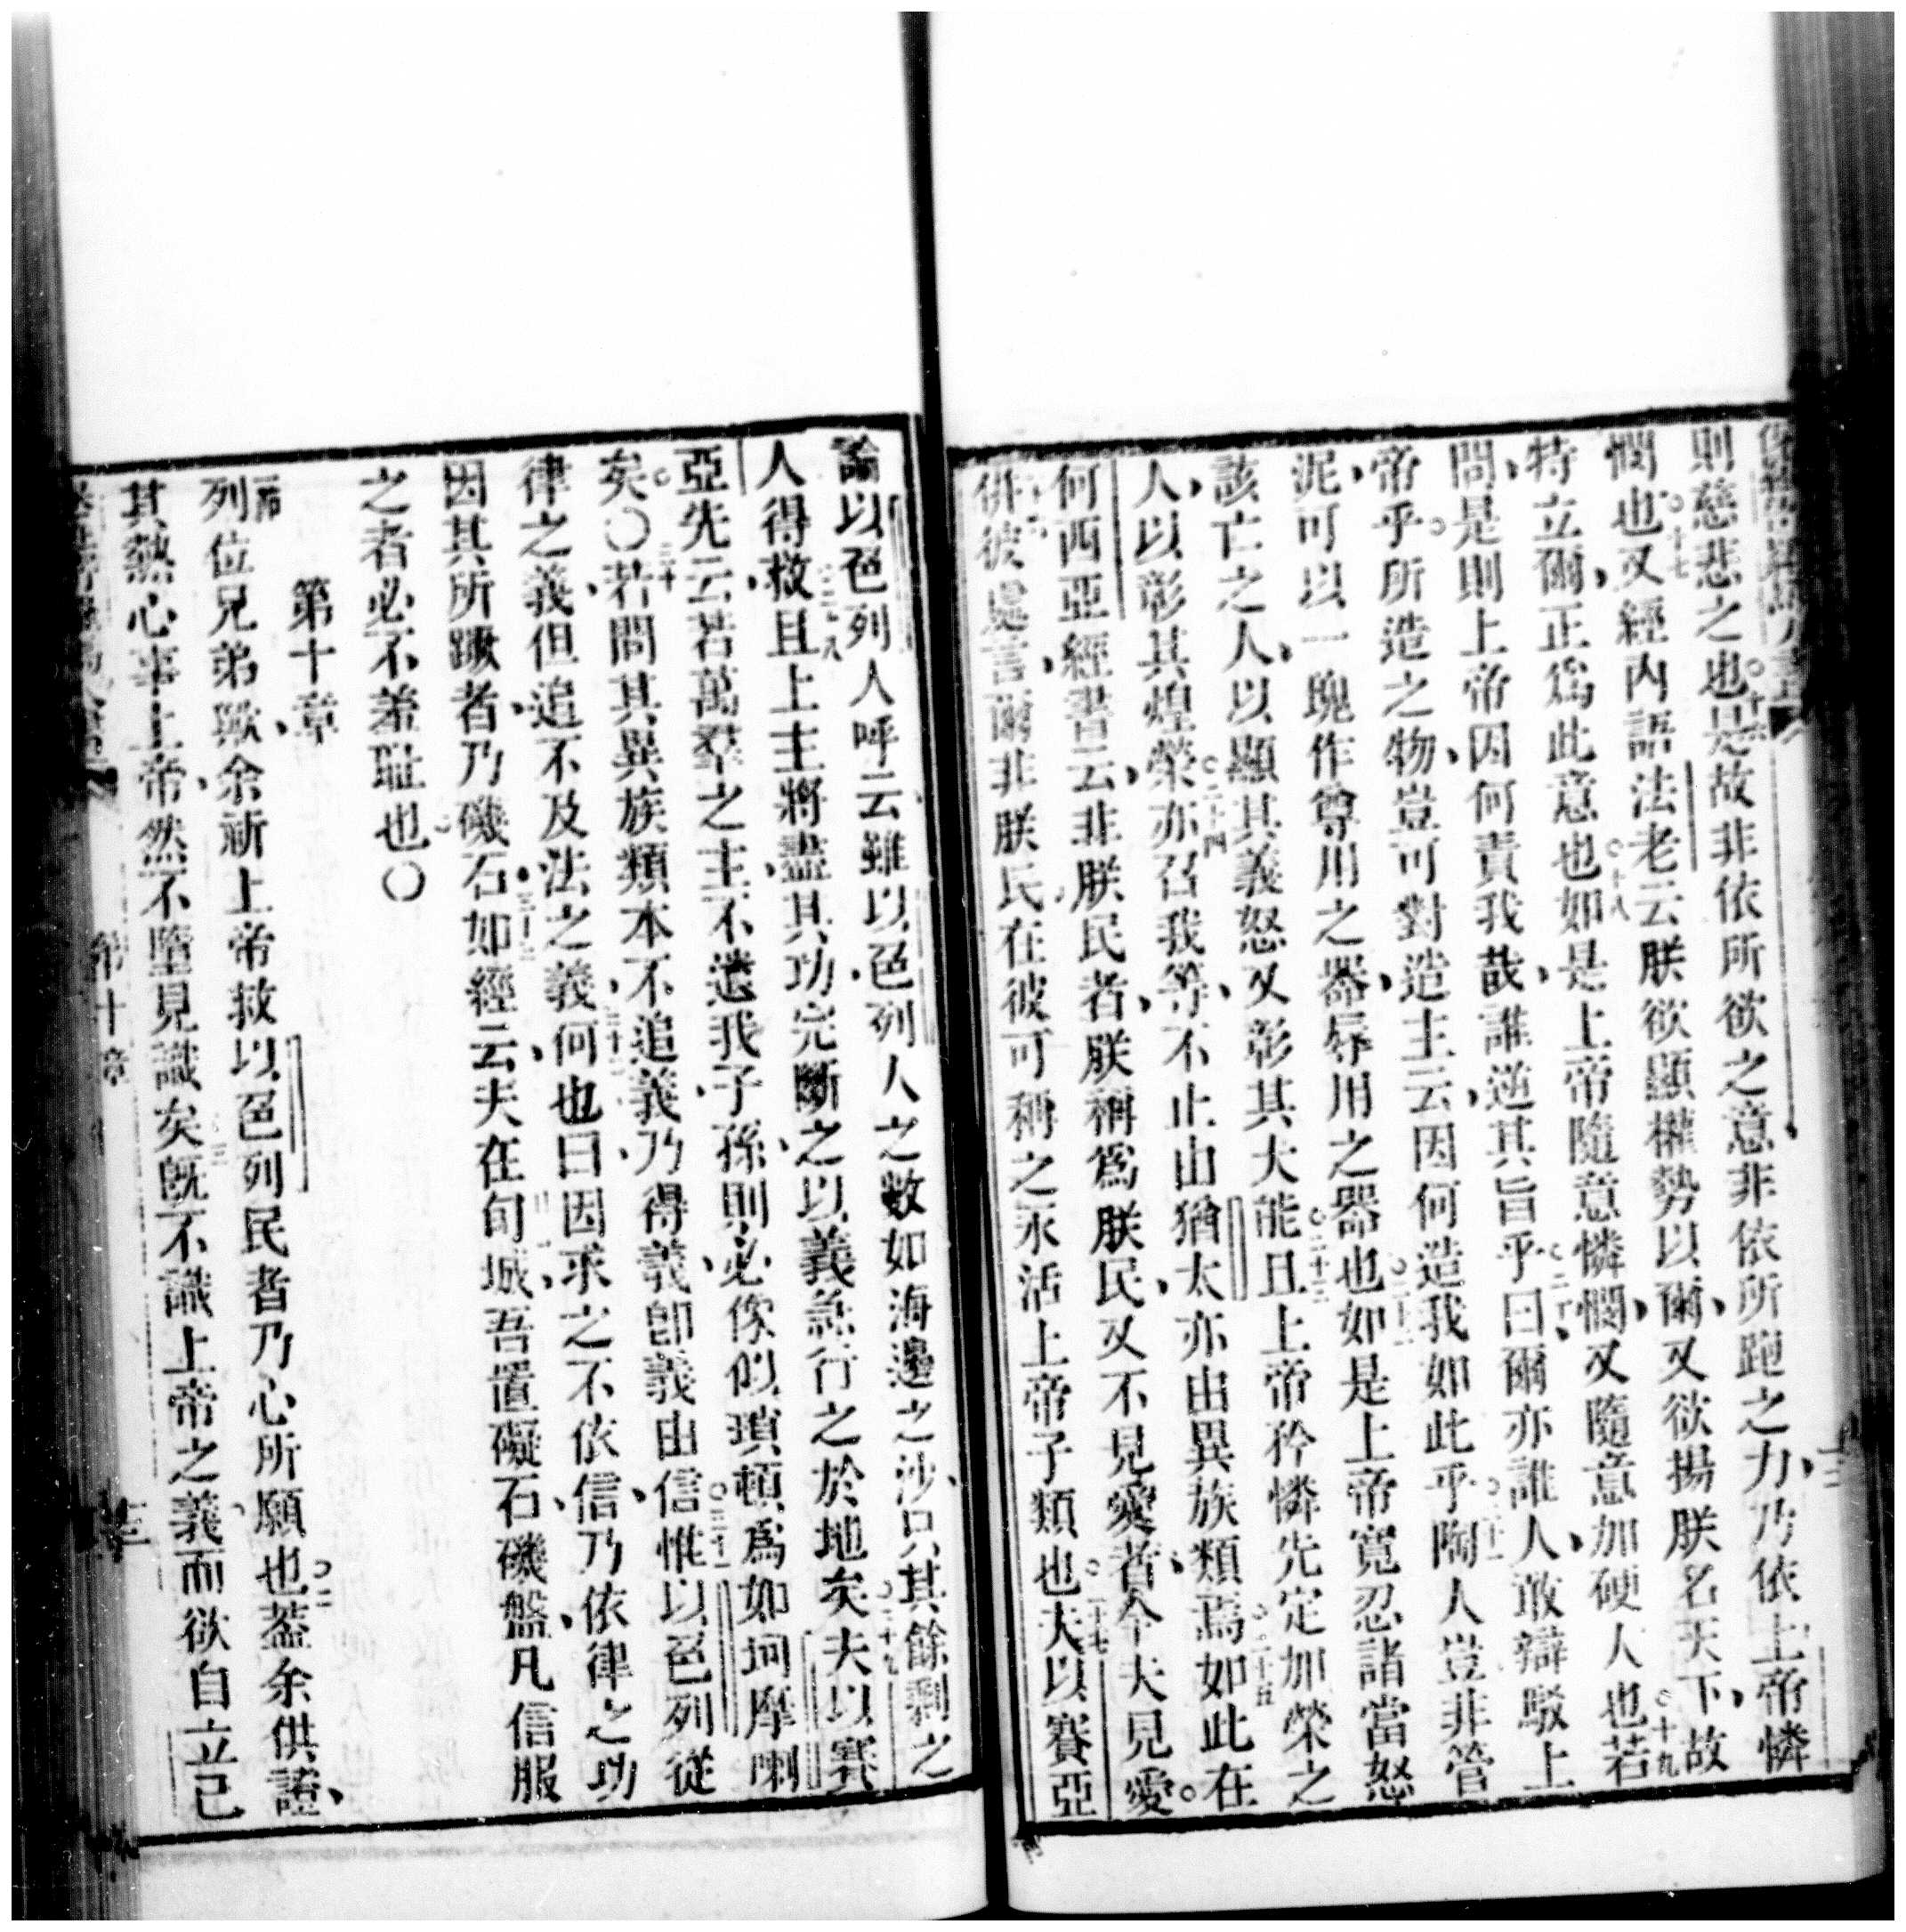 則慈悲之也。十六是故非依所欲之意非依所跑之力、乃依上帝憐
憫也。十七又經內語法老云朕欲顯權勢以爾、又欲揚朕名天下、故
特立爾、正為此意也。十八如是上帝隨意憐憫、又隨意加硬人也。十九若
問、是則上帝因何責我哉、誰逆其旨乎。二十曰、爾亦誰人、敢辯駁上
帝乎。所造之物、豈可對造主云、因何造我如此乎。二十一陶人豈非管
泥、可以一塊作尊用之器、辱用之器也。二十二如是上帝寬忍諸當怒
該亡之人、以顯其義怒又彰其大能。二十三且上帝矜憐先定加榮之
人、以彰其煌榮。二十四亦召我等、不止由猶太亦由異族類焉。二十五如此在
何西亞經書云、非朕民者、朕稱為朕民、又不見愛者、今夫見愛。
二十六併彼處言、爾非朕民、在彼可稱之永活上帝子類也。二十七夫以賽亞
論以色列人呼云雖以色列人之數如海邊之沙、只其餘剩之
人得救、二十八且上主將盡其功、完斷之以義、急行之於地矣。二十九夫以賽
亞先云、若萬羣之主、不遺我子孫、則必像似瑣頓、為如坷摩喇
矣。〇三十若問其異族類本不追義、乃得義、卽義由信。三十一惟以色列從
律之義、但追不及法之義、三十二何也、曰因求之不依信、乃依律之功、
因其所蹶者、乃磯石。三十三如經云、夫在旬城、吾置礙石、磯盤、凡信服
之者必不羞耻也。〇
第十章
一節列位兄弟歟、余祈上帝救以色列民者、乃心所願也。二蓋余供證、
其熱心事上帝、然不隨見識矣。三旣不識上帝之義、而欲自立己
第十章